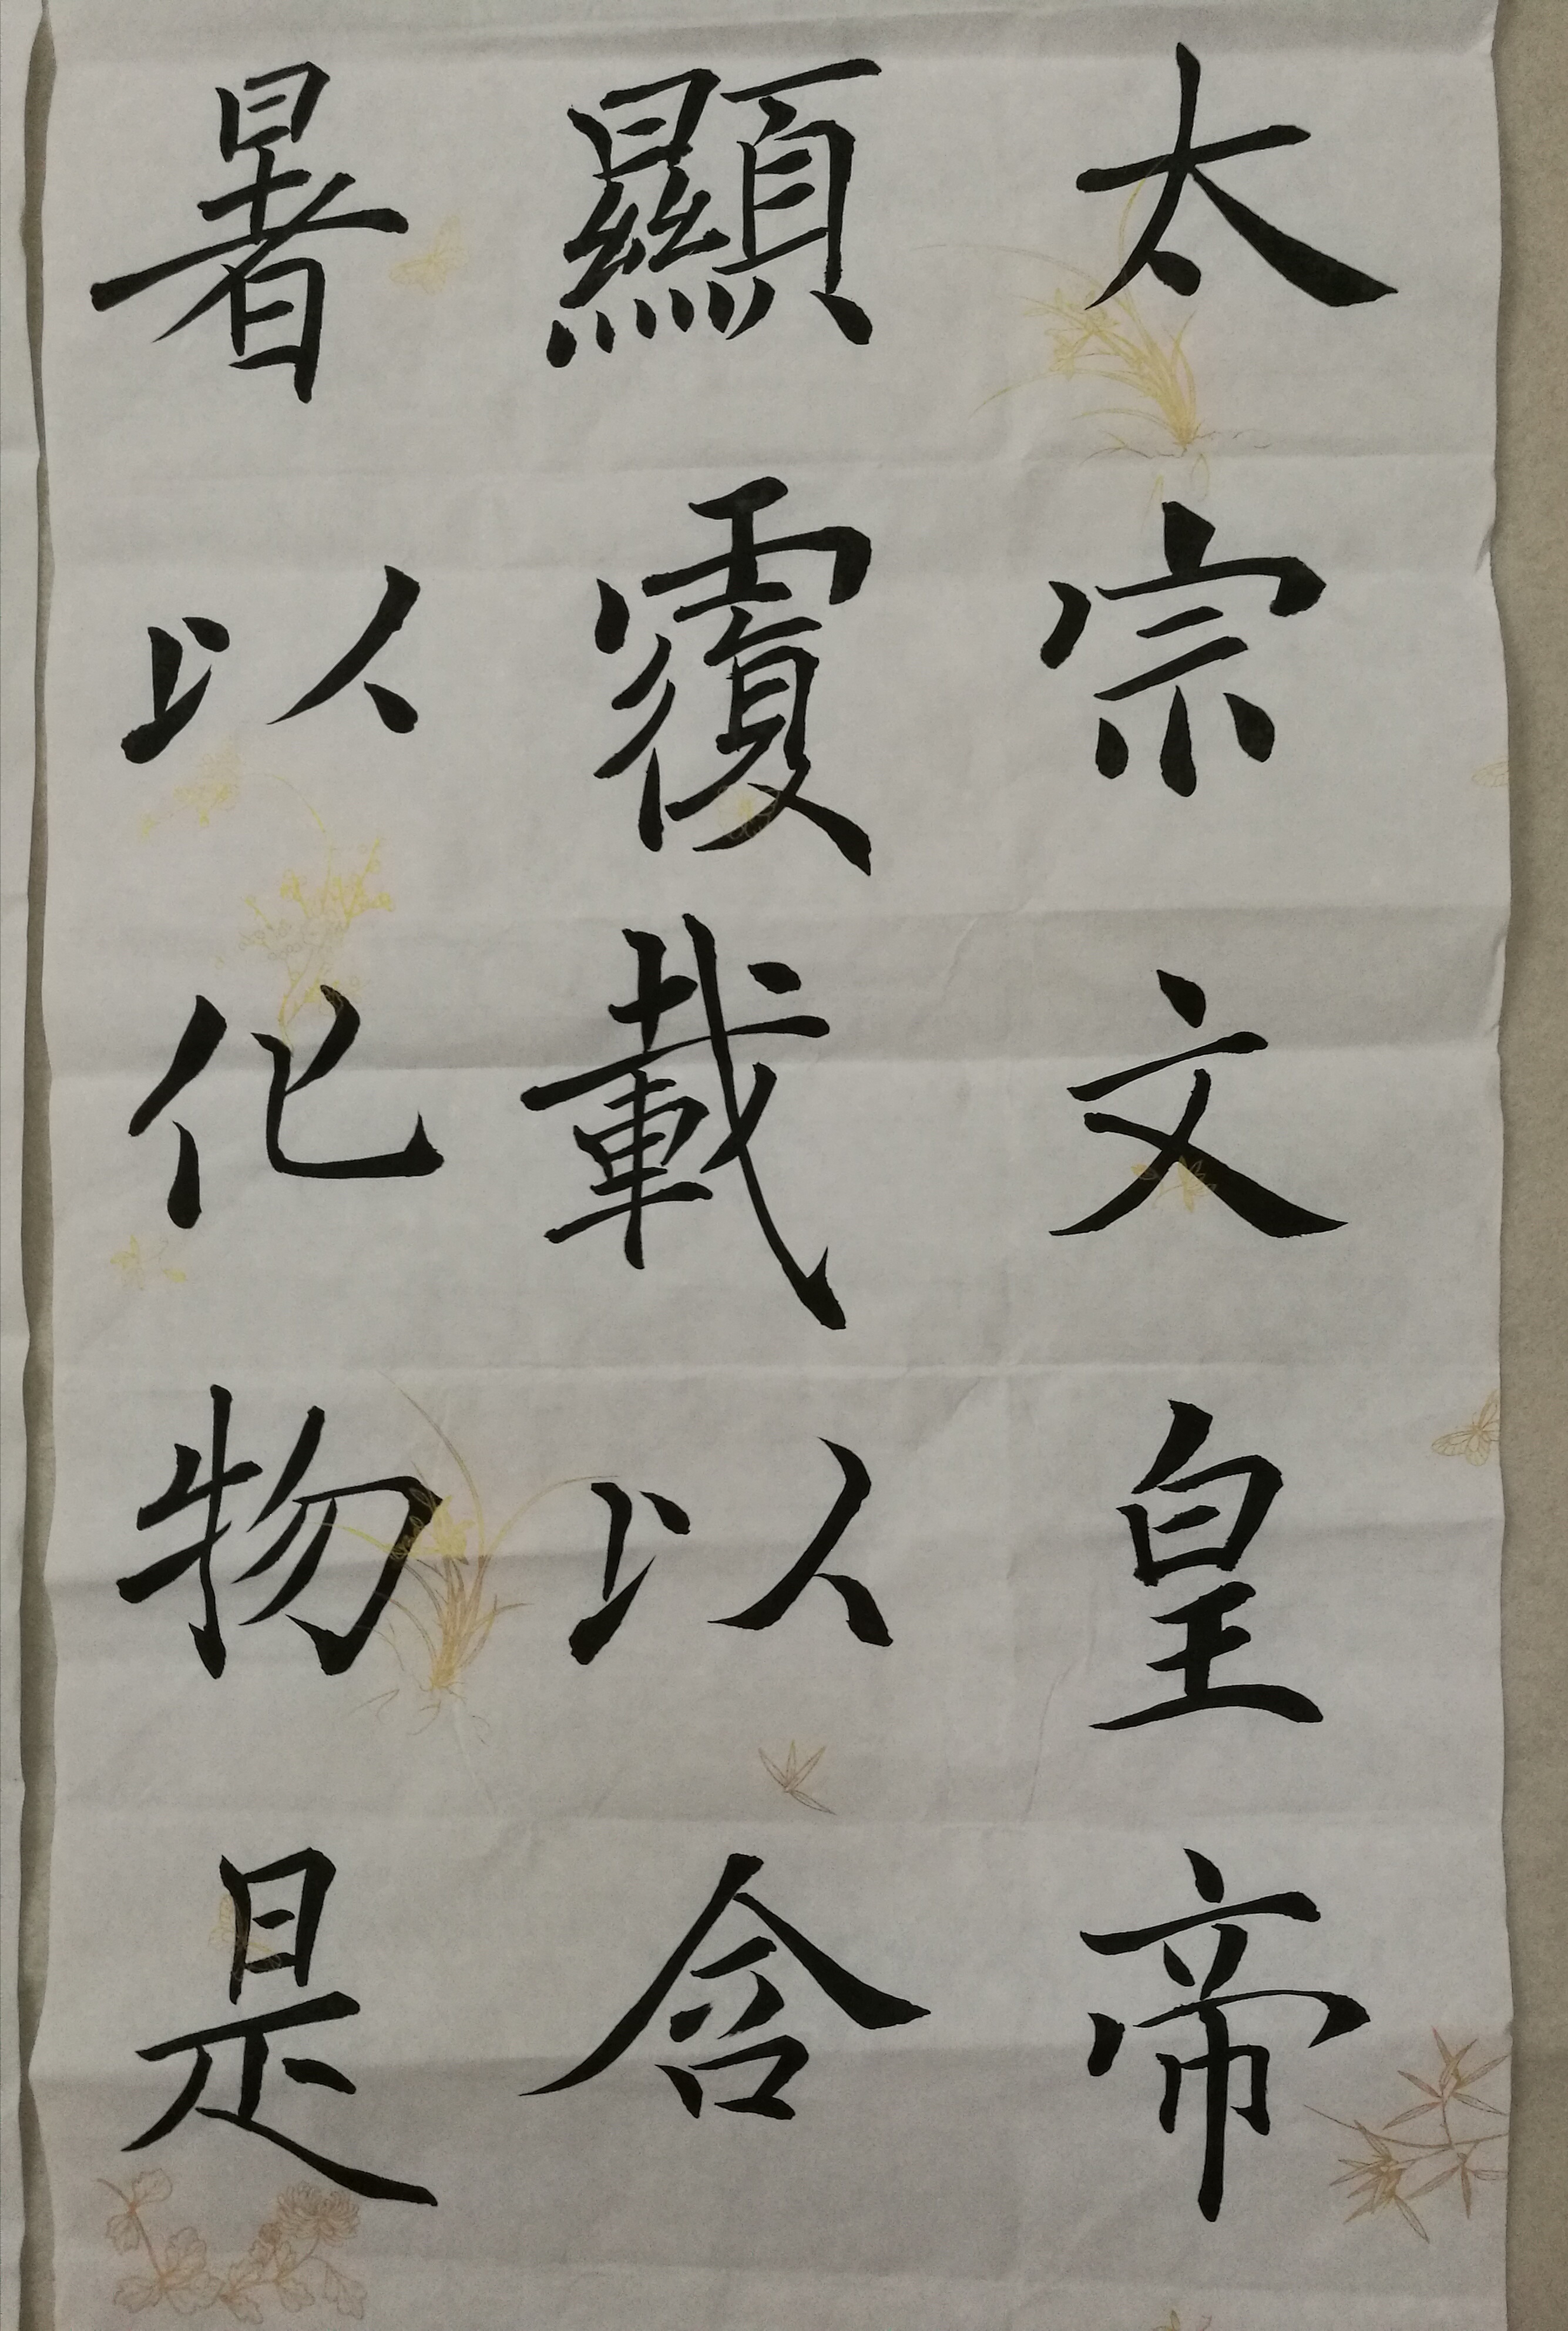 太宗文皇帝
顯覆載以含
暑以化物是